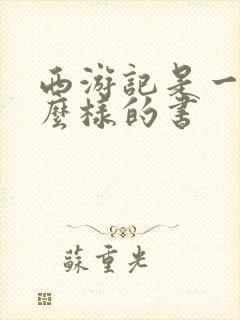 西游記是一
麼樣的書
蘇重光